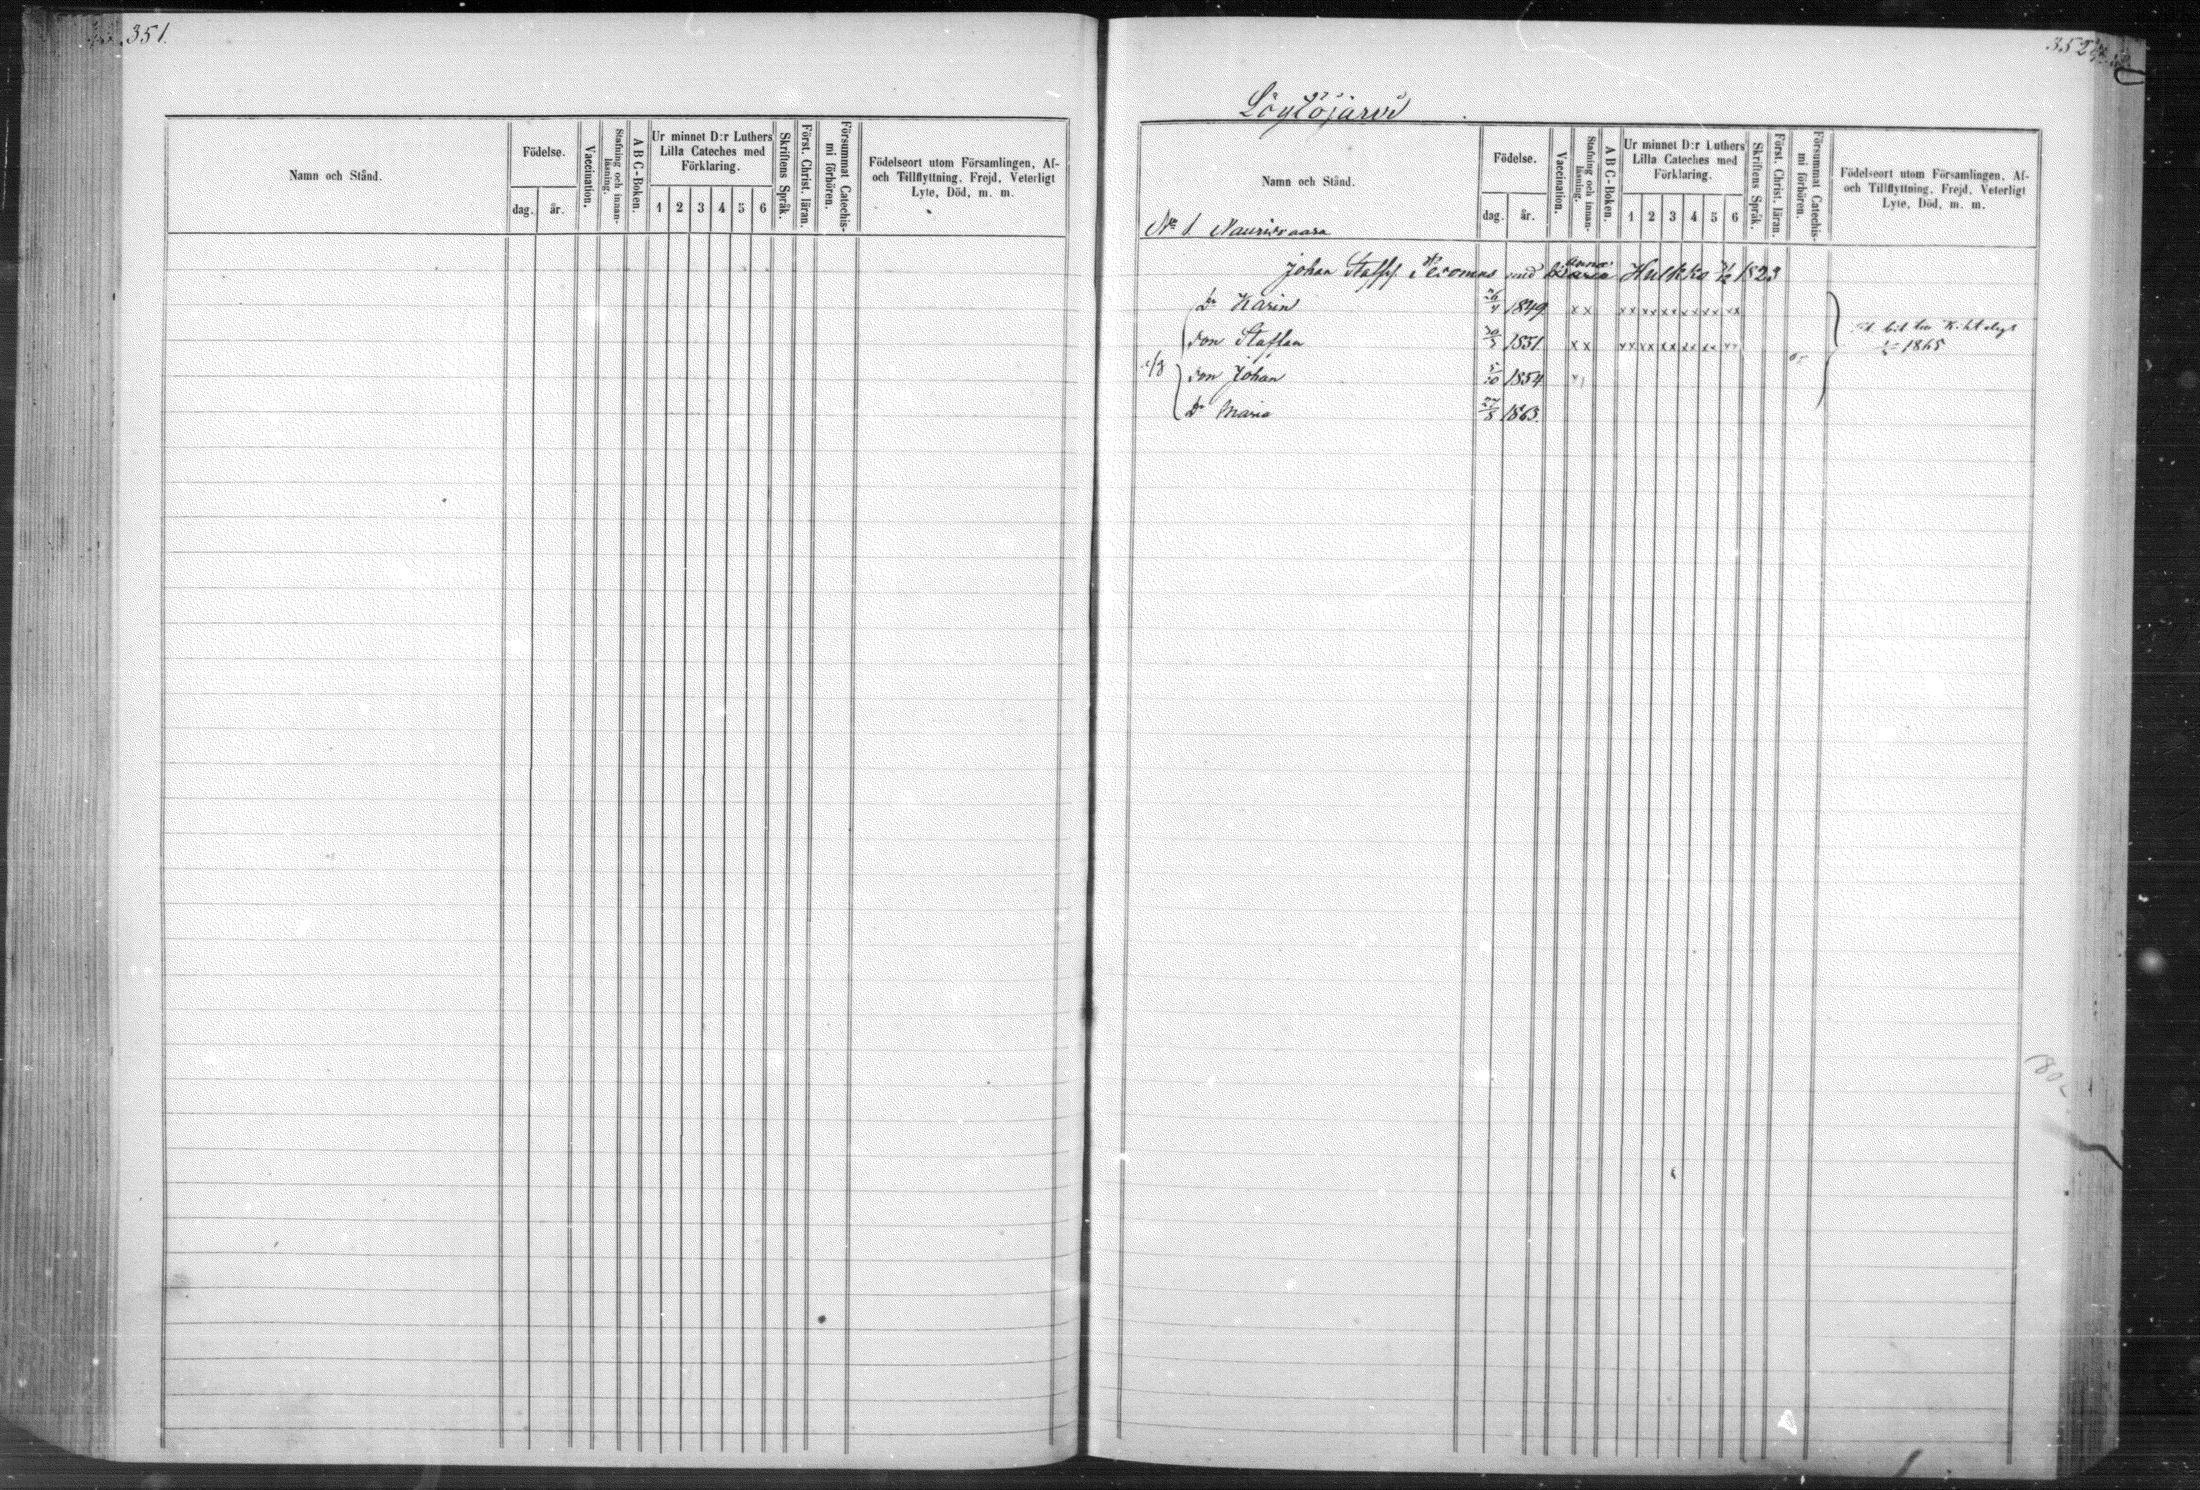 351.
Namn och Stånd.
Födelse.
dag.
år.
Vaccination.
Stafning och innanläsning.
A B C-Boken.
Ur minnet D:r Luthers
Lilla Cateches med
Förklaring.
1 2 3 4 5 6
Skriftens Språk.
Först. Christ. läran.
Försummat Catechismi förhören.
Födelseort utom Församlingen, Af-
och Tillflyttning, Frejd, Veterligt
Lyte, Död, m. m.
352
Namn och Stånd.
Födelse.
dag.
år.
Vaccination.
Stafning och innanläsning.
A B C-Boken.
Ur minnet D:r Luthers
Lilla Cateches med
Förklaring.
1 2 3 4 5 6
Skriftens Språk.
Först. Christ. läran.
Försummat Catechismi förhören.
Födelseort utom Församlingen, Af-
och Tillflyttning, Frejd, Veterligt
Lyte, Död, m. m.
No 1 Naurisvaara
Johan Staff med Maria Hulkko 1823
Dr Karin 26/4 1849 x x x x x x x x x x x x x x
son Staffan 1851 x x x x x x x x x x x x x x
1865
son Johan 5/10 1854
Dr Maria 27/8 1863.